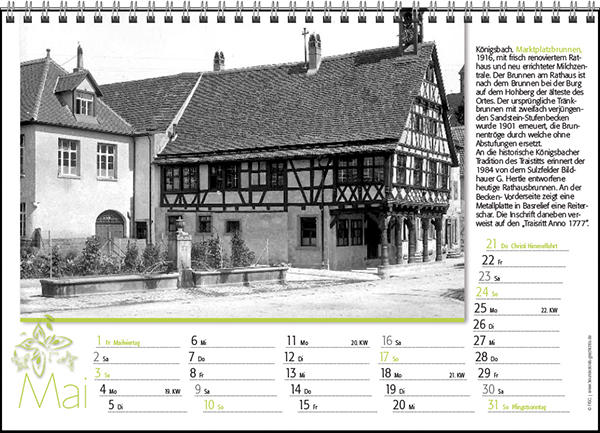 Königsbach. Marktplatzbrunnen,
1916, mit frisch renoviertem Rat-
haus und neu errichteter Milchzen-
trale. Der Brunnen am Rathaus ist
nach dem Brunnen bei der Burg
auf dem Hohberg der älteste des
Ortes. Der ursprüngliche Tränk-
brunnen mit zweifach verjüngen-
den Sandstein-Stufenbecken
wurde 1901 erneuert, die Brun-
nentröge durch welche ohne
Abstufungen ersetzt.
An die historische Königsbacher
Tradition des Traistitts erinnert der
1984 von dem Sulzfelder Bild-
hauer G. Hertle entworfene
heutige Rathausbrunnen. An der
Becken- Vorderseite zeigt eine
Metallplatte in Basrelief eine Reiter-
schar. Die Inschrift daneben ver-
weist auf den „Traisritt Anno 1777".
21 Do Christi Himmelfahrt
22 Fr
23 Sa
24 So
25 Mo 22. KW
26 Di
27 Mi
28 Do
29 Fr
30 Sa
31 So Pfingstsonntag
Mai
1 Fr Maifeiertag
2 Sa
3 So
4 Mo 19. KW
5 Di
6 Mi
7 Do
8 Fr
9 Sa
10 So
11 Mo 20. KW
12 Di
13 Mi
14 Do
15 Fr
16 Sa
17 So
18 Mo 21. KW
19 Di
20 Mi